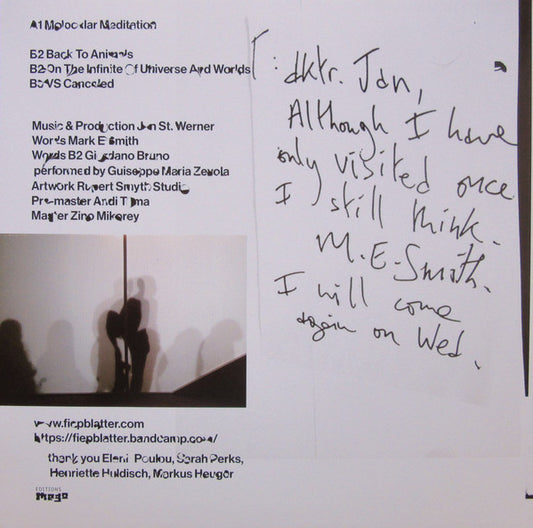 A1 Molocular Meditation
B2 Back To Animals
B2 On The Infinite Of Universe And Worlds
B3 VS Canceled
Music & Production Jan St. Werner
Words Mark E Smith
Words B2 Giordano Bruno
performed by Guiseppe Maria Zevola
Artwork Rupert Smyth Studio
Pre-master Andi Toma
Master Zino Mikorey
www.fiepblatter.com
https://fiepblatter.bandcamp.com/
thank you Eleni Poulou, Sarah Perks,
Henriette Huldisch, Markus Heuger
EDITIONS
Mego
: dktr. Jan,
Although I have
only visited once
I still think.
M.E.Smith.
I will come
again on Wed.